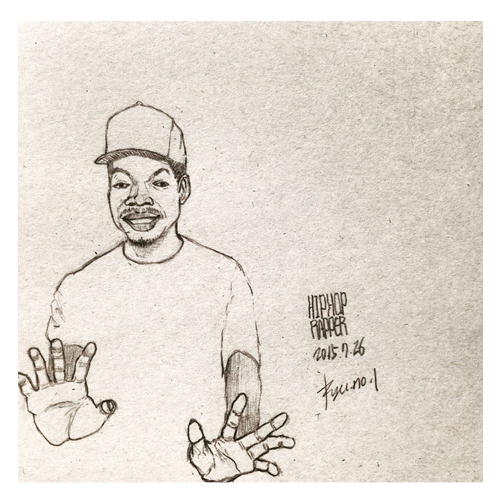 HIPHOP
RAPPER
2015.7.26
Kyu.no.1